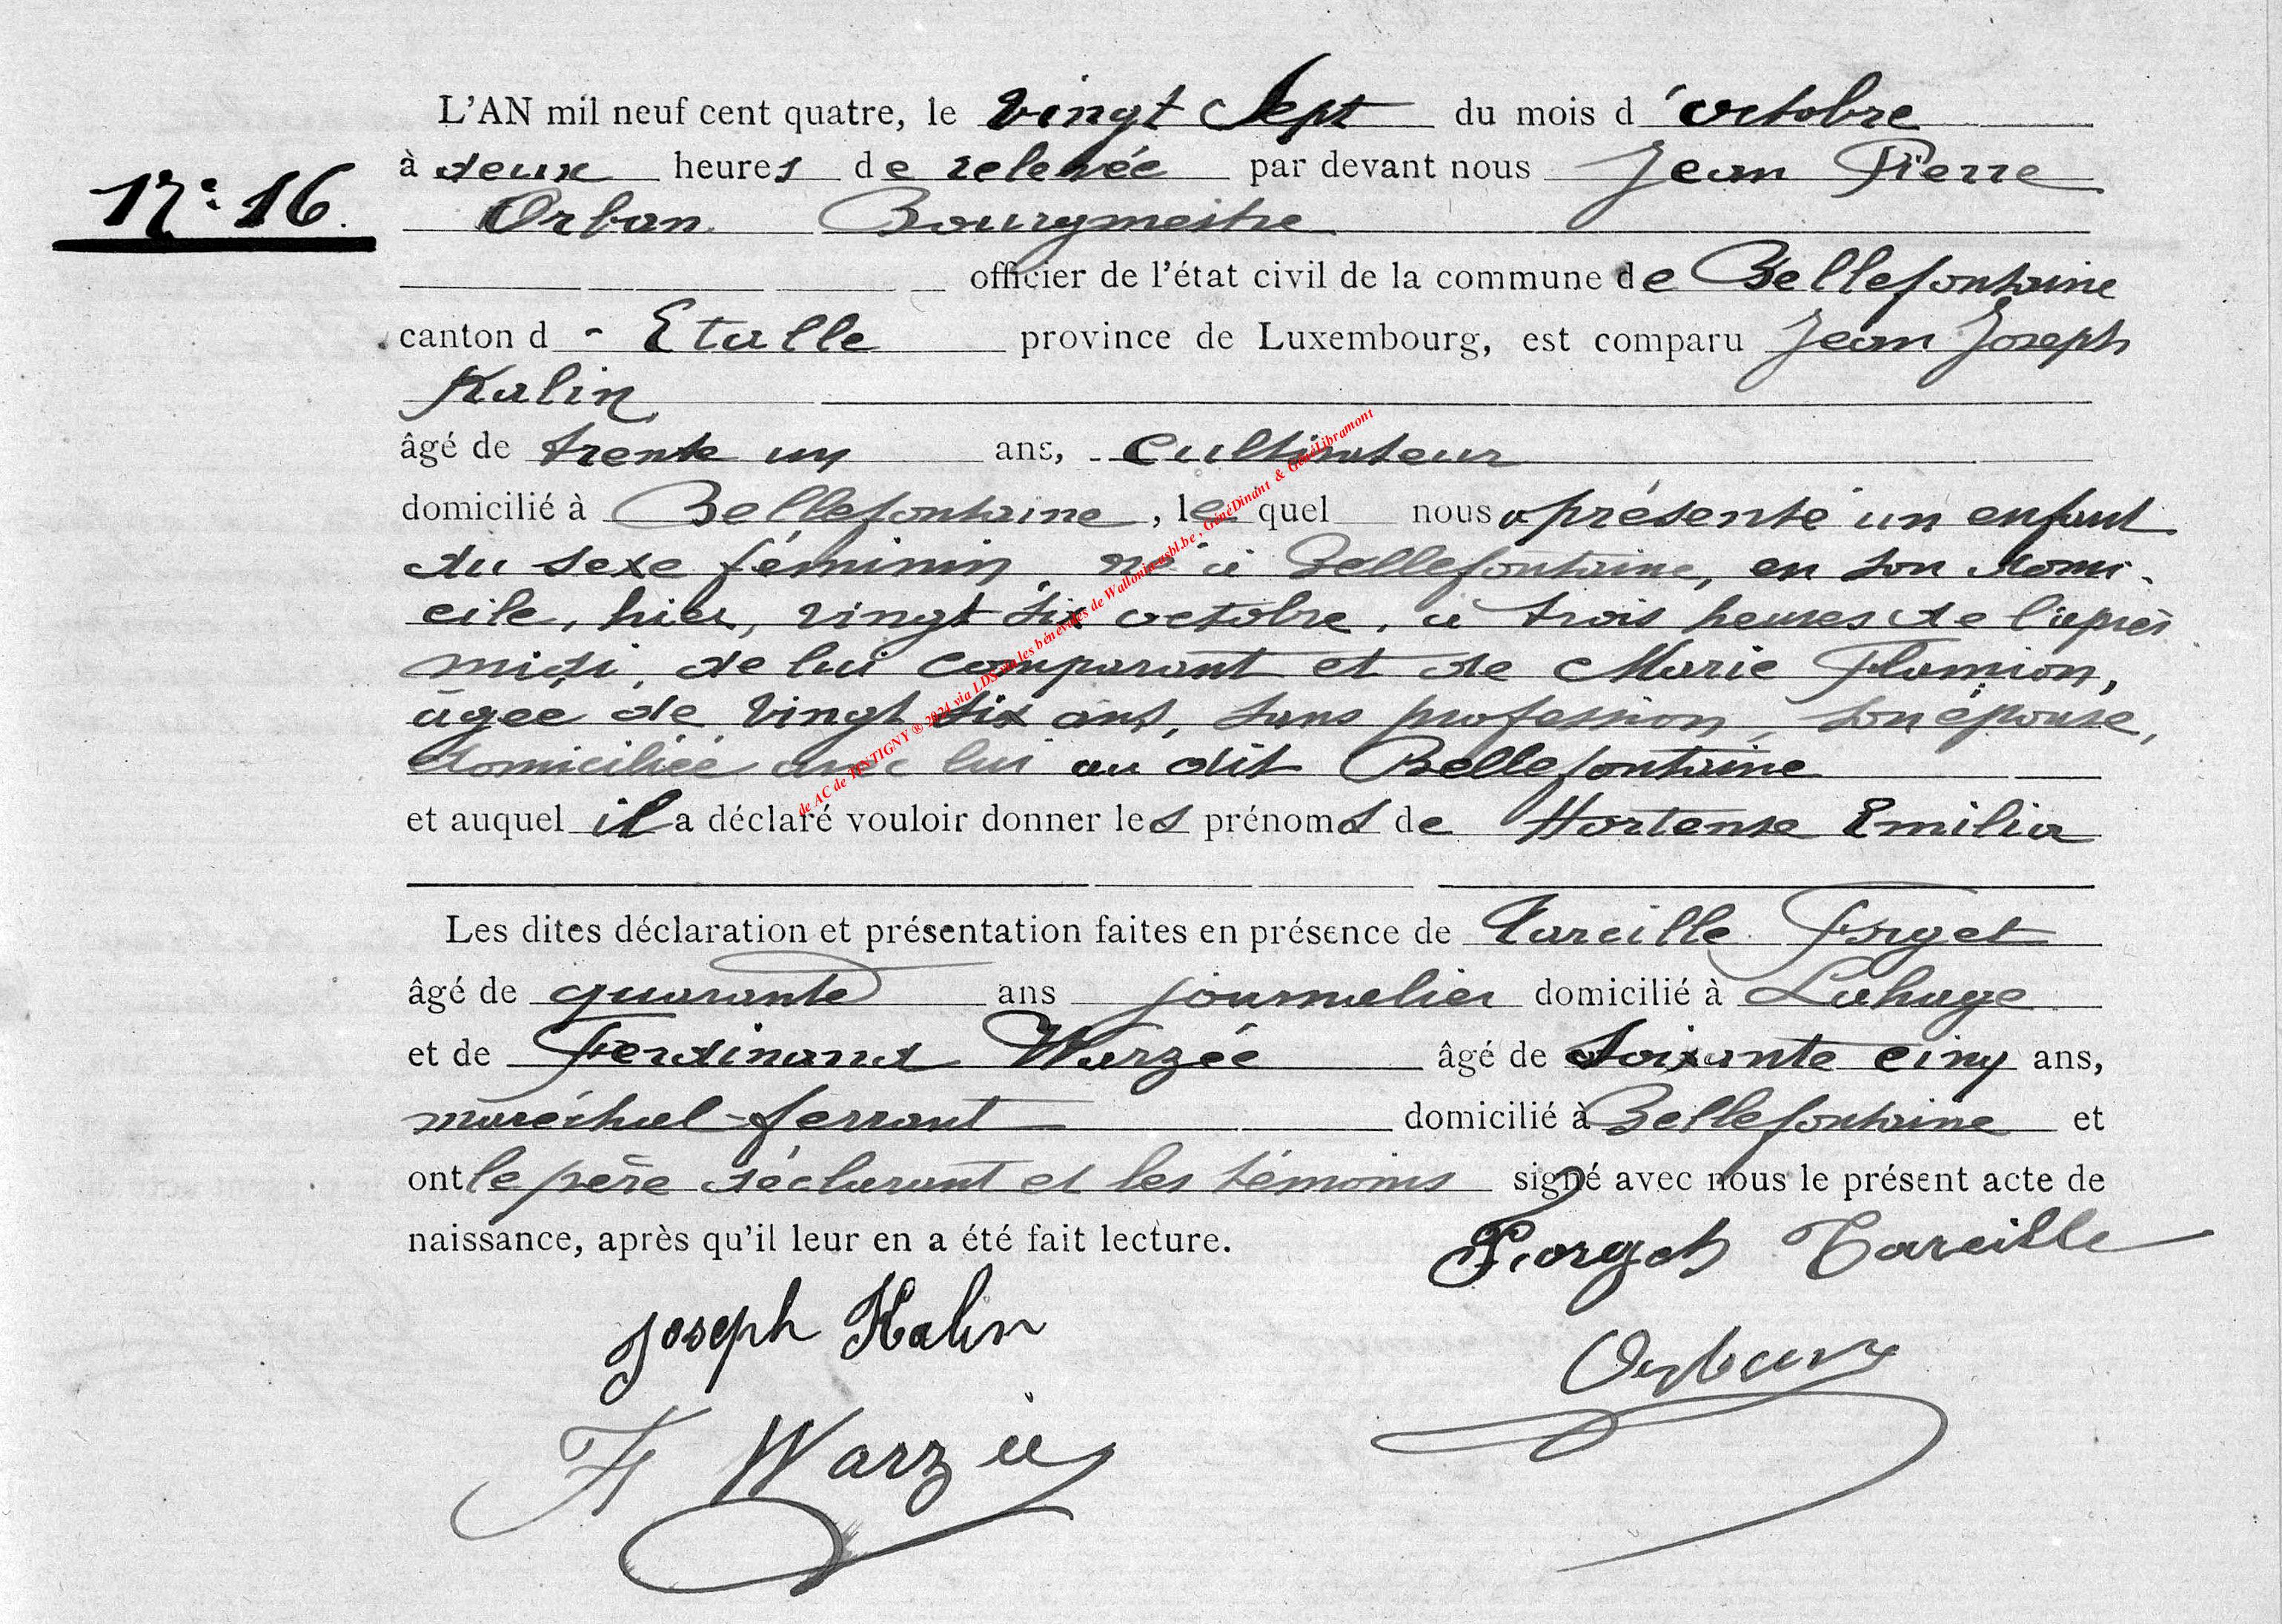 L'AN mil neuf cent quatre, le vingt sept du mois d'octobre
à deux heures de relevée par devant nous Jean Pierre
N° 16.
Orban Bourgmestre
officier de l'état civil de la commune de Bellefontaine
canton d - Etalle province de Luxembourg, est comparu Jean Joseph
Kalin
âgé de trente un ans, cultivateur
domicilié à Bellefontaine, lequel nous a présenté un enfant
du sexe féminin, né à Bellefontaine, en son domi-
cile, hier, vingt six octobre, à trois heures de l'après
midi, de lui comparant et de Marie Flamion,
âgée de vingt six ans, sans profession, son épouse,
domiciliée avec lui au dit Bellefontaine
et auquel il a déclaré vouloir donner les prénoms de Hortense Emilia
Les dites déclaration et présentation faites en présence de Tareille Forget
âgé de quarante ans journalier domicilié à Lahage
et de Ferdinand Warzée âgé de soixante cinq ans,
maréchal-ferrant domicilié à Bellefontaine et
ont le père déclarant et les témoins signé avec nous le présent acte de
naissance, après qu'il leur en a été fait lecture.
Forget Tareille
Joseph Kalin
Orban
F Warzée
de AC de TINTIGNY ® 2024 via LDS via les bénévoles de Wallonia-asbl.be, GénéDinant & GénéLibramont